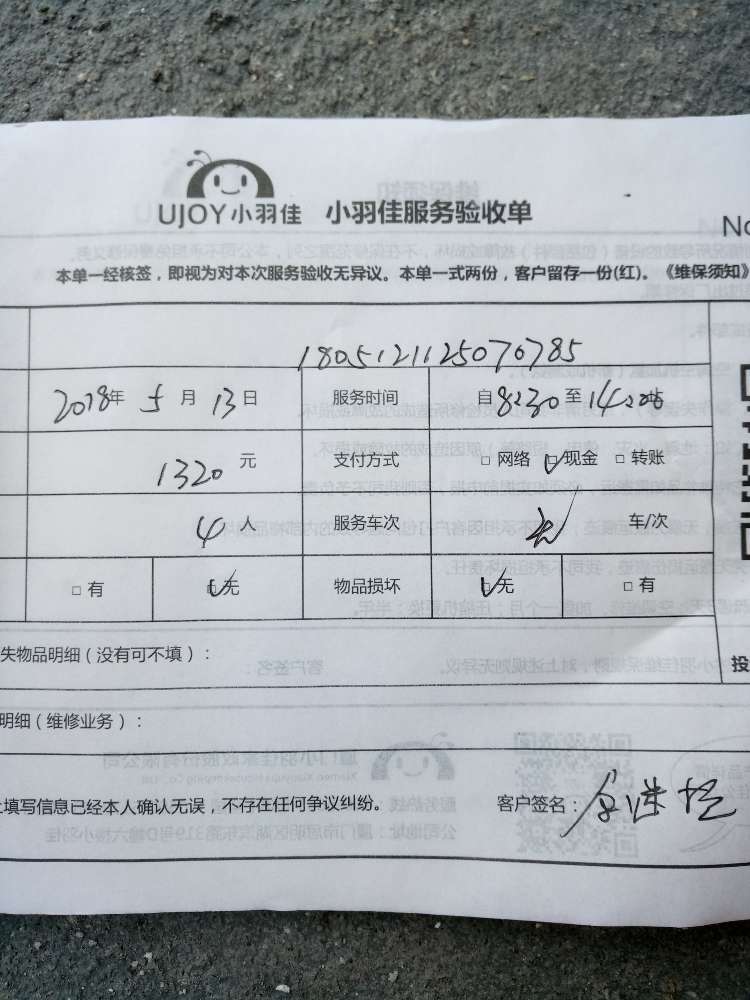 UJOY小羽佳 小羽佳服务验收单
No
本单一经核签，即视为对本次服务验收无异议。本单一式两份，客户留存一份(红)。《维保须知》
18051211125070785
2018年 5 月 13 日 服务时间 自8:30至14:00
1320 元 支付方式 □ 网络 □ 现金 □ 转账
4 人 服务车次 车/次
□ 有 □ 无 物品损坏 □ 无 □ 有
失物品明细（没有可不填）：
投
明细（维修业务）：
上填写信息已经本人确认无误，不存在任何争议纠纷。 客户签名：